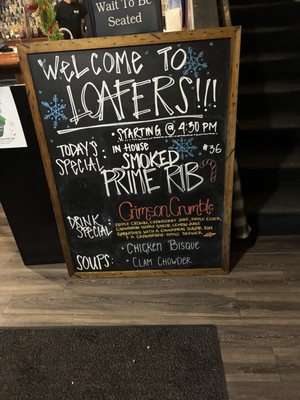 Wait To Be
Seated
WELCOME TO
LOAFERS!!!
• STARTING @ 4:30 PM
TODAY'S
SPECIAL:
IN HOUSE
SMOKED
PRIME RIB
$36
DRINK
SPECIAL:
Crimson Crumble
APPLE CROWN, CRANBERRY JUICE, APPLE CIDER,
CINNAMON SIMPLE SYRUP, LEMON JUICE
GARNISHED WITH A CINNAMON SUGAR RIM
& A CRANBERRY-APPLE SKEWER
SOUPS:
• CHICKEN BISQUE
• CLAM CHOWDER